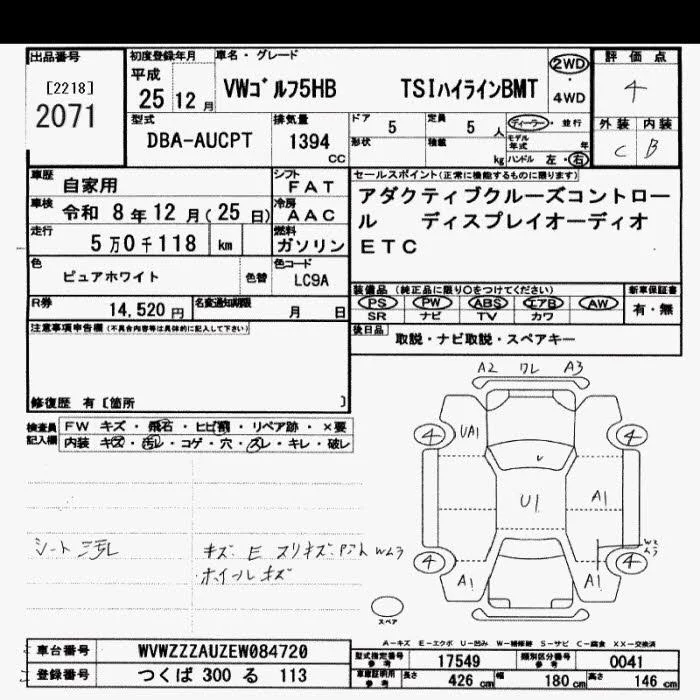 出品番号
[2218]
2071
初度登録年月
平成
25 12 月
車名・グレード
VWゴルフ5HB TSIハイラインBMT
2WD
4WD
評価点
4
外装 内装
C B
型式
DBA-AUCPT
排気量
1394
CC
ドア 5
定員 5 人
ディーラー・並行
形状
積載 kg
モデル年式 年
ハンドル 左・右
車歴 自家用
シフト
FAT
セールスポイント(正常に機能するものに限ります)
アダクティブクルーズコントロー
ル ディスプレイオーディオ
ETC
車検 令和 8年 12月(25日)
冷房
AAC
走行 5万0千118 km
燃料
ガソリン
色 ピュアホワイト 色替
色コード
LC9A
装備品(純正品に限り○をつけてください)
PS PW ABS エアB AW
SR ナビ TV カワ
新車保証書
有・無
R券 14,520 円
名変通知期限 月 日
後日品 取説・ナビ取説・スペアキー
注意事項申告欄(不具合内容等は具体的に記入して下さい)
修復歴 有[箇所 ]
検査員記入欄
FW キズ・飛石・ヒビ割・リペア跡・×要
内装 キズ・汚レ・コゲ・穴・スレ・キレ・破レ
A2 ワレ A3
4 UA1 4
U1 A1
4 4
A1 A1
シート 汚レ
キズ E スリキズ
ホイールキズ
スペア
A-キズ E-エクボ U-凹み W-補修跡 S-サビ C-腐食 XX-交換済
車台番号 WVWZZZAUZEW084720
登録番号 つくば 300 る 113
型式指定番号 参考 17549
類別区分番号 参考 0041
車庫証明用 参考 長さ 426 cm 幅 180 cm 高さ 146 cm